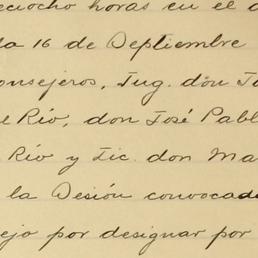 eciocho horas en el d
la 16 de Septiembre
onsejeros, Ing. don J
el Río, don José Pabl
Río y Lic. don Ma
la Sesión convocad
ejo por designar por